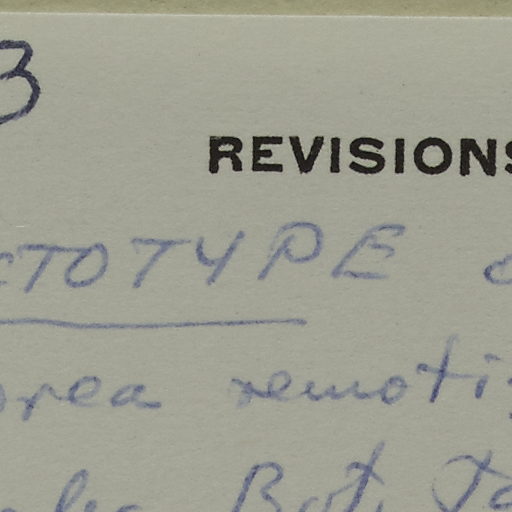 3
REVISIONS
CTOTYPE
orea remoti
Bot.